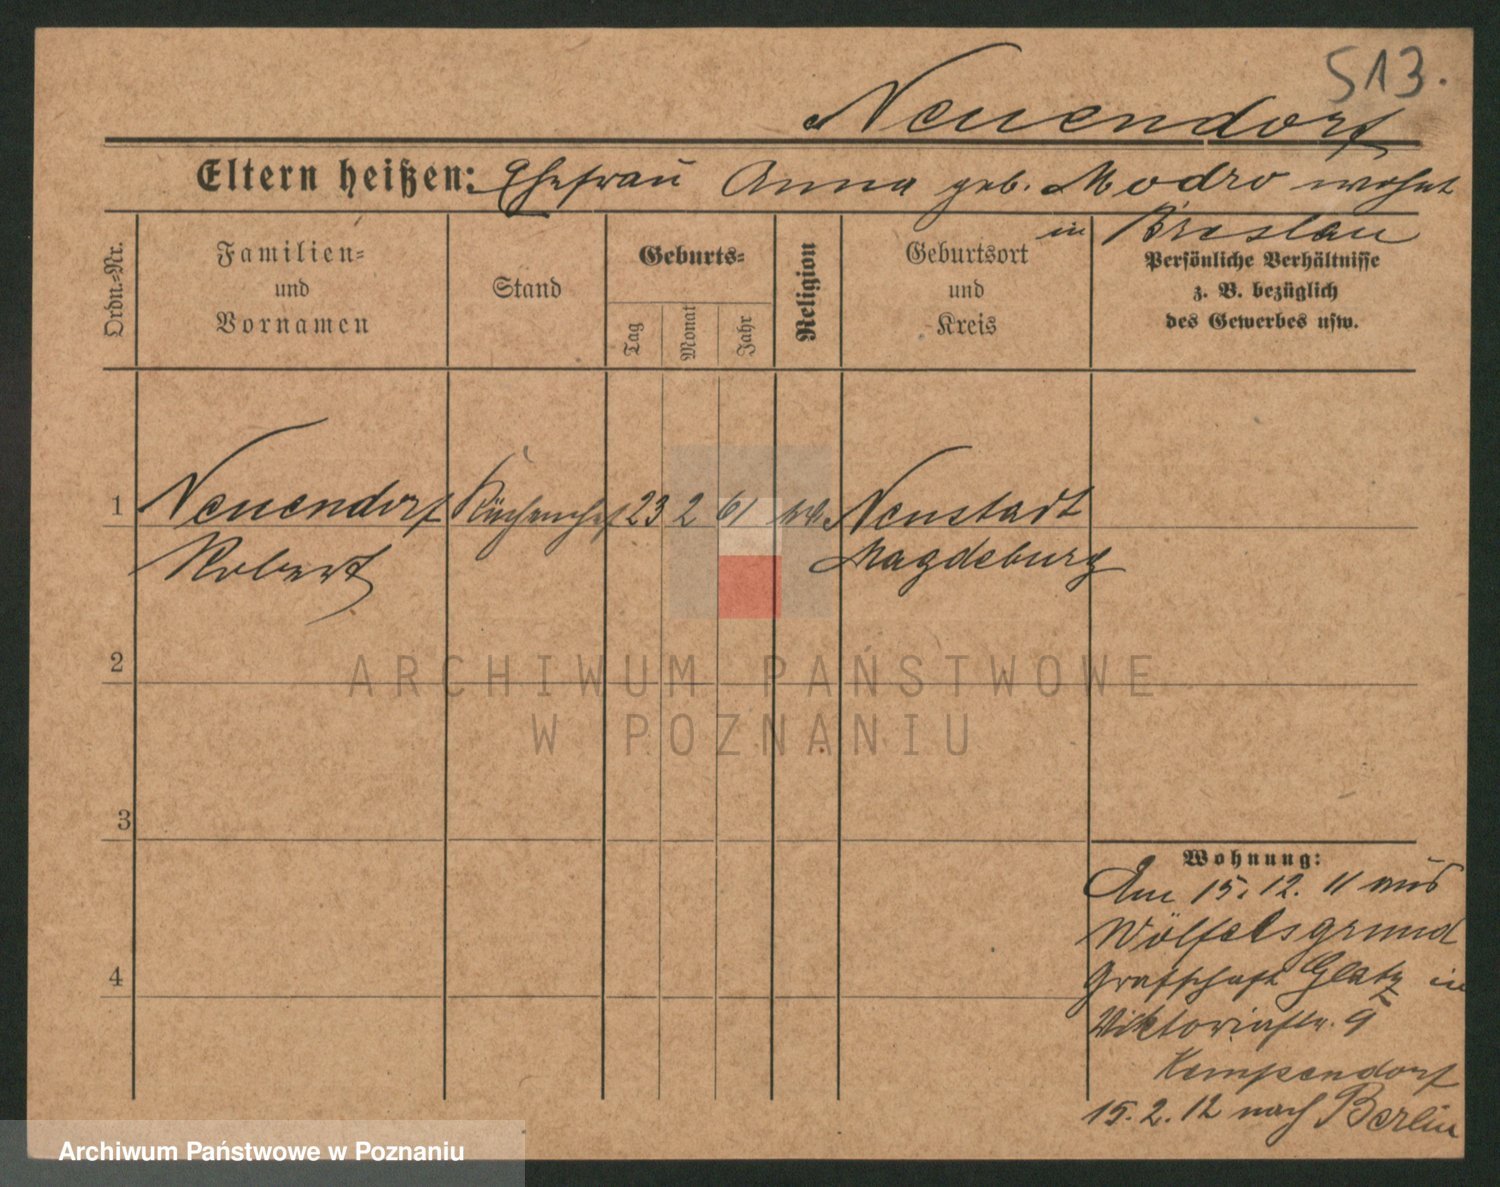 513.
Neuendorf
Eltern heißen: Ehefrau Anna geb. Modro wohnt
in Breslau
Ordn.-Nr.
Familien-
und
Vornamen
Stand
Geburts-
Tag
Monat
Jahr
Religion
Geburtsort
und
Kreis
Persönliche Verhältnisse
z. B. bezüglich
des Gewerbes usw.
1 Neuendorf Küchenchef 23 2 61 Neustadt
Robert Magdeburg
2
3
4
Wohnung:
Am 15.12.11 aus
Wölfelsgrund
Grafschaft Glatz in
Viktoriastr. 9
Kempendorf
15.2.12 nach Berlin
ARCHIWUM PAŃSTWOWE
W POZNANIU
Archiwum Państwowe w Poznaniu